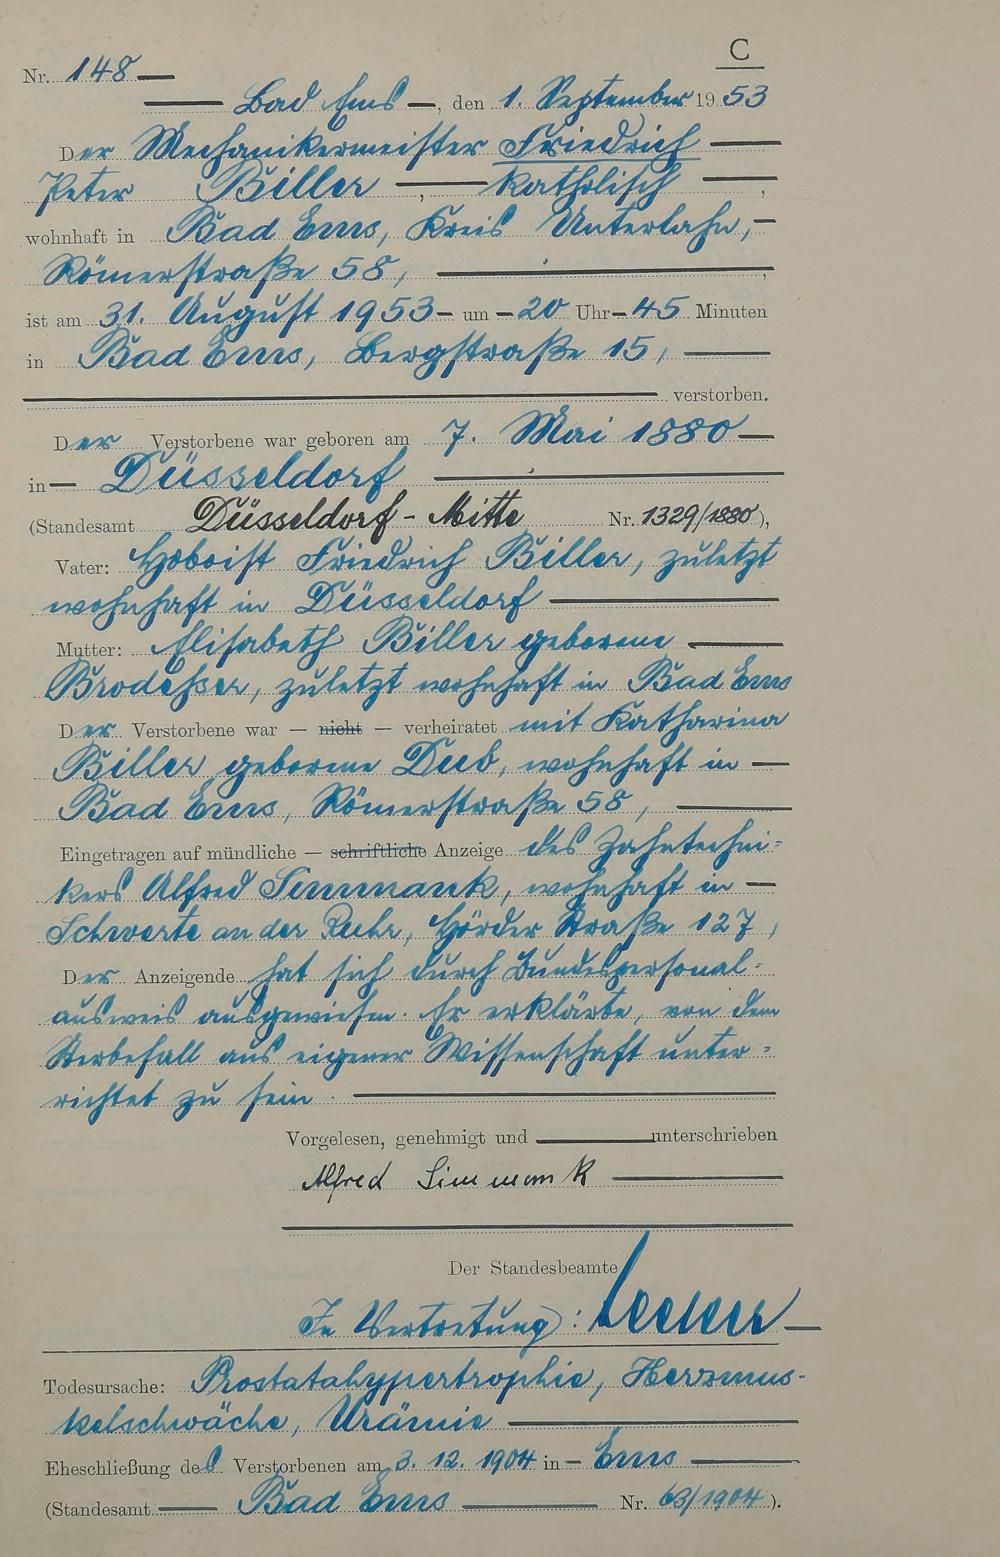 C
Nr. 148
Bad Ems, den 1. September 1953
Der Mechanikermeister Friedrich
Peter Biller, katholisch,
wohnhaft in Bad Ems, Kreis Unterlahn,
Römerstraße 58,
ist am 31. August 1953 um 20 Uhr 45 Minuten
in Bad Ems, Bergstraße 15,
verstorben.
Der Verstorbene war geboren am 7. Mai 1880
in Düsseldorf
(Standesamt Düsseldorf-Mitte Nr. 1329/1880),
Vater: Hoboist Friedrich Biller, zuletzt
wohnhaft in Düsseldorf
Mutter: Elisabeth Biller geborene
Brodeßser, zuletzt wohnhaft in Bad Ems
Der Verstorbene war — nicht — verheiratet mit Katharina
Biller geborene Deub, wohnhaft in
Bad Ems, Römerstraße 58,
Eingetragen auf mündliche — schriftliche Anzeige des Zahntechni=
kers Alfred Simmank, wohnhaft in
Schwerte an der Ruhr, Hörder Straße 127,
Der Anzeigende hat sich durch Bundespersonal=
ausweis ausgewiesen. Er erklärte, von dem
Sterbefall aus eigener Wissenschaft unter=
richtet zu sein.
Vorgelesen, genehmigt und unterschrieben
Alfred Simmank
Der Standesbeamte
In Vertretung:
Todesursache: Prostatahypertrophie, Herzmus-
kelschwäche, Urämie
Eheschließung des Verstorbenen am 3. 12. 1904 in Ems
(Standesamt Bad Ems Nr. 63/1904).